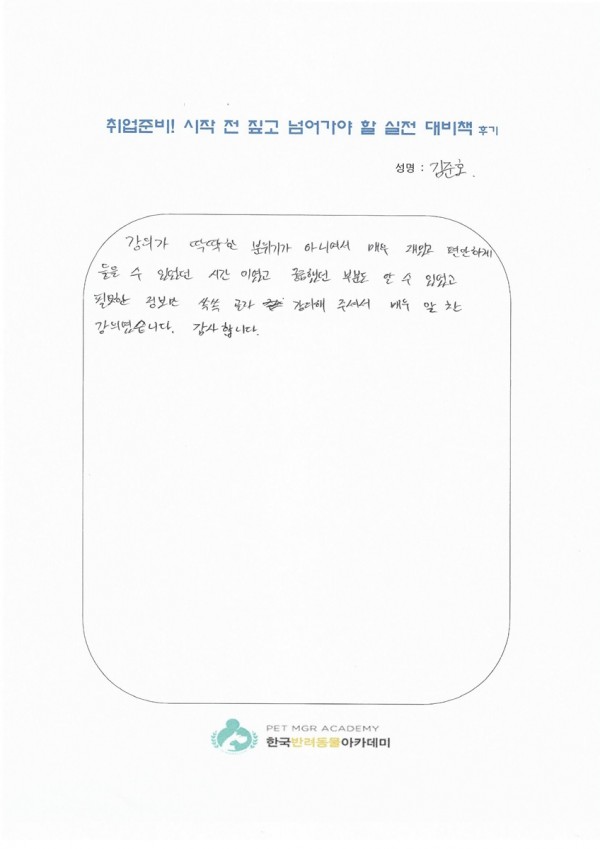 취업준비! 시작 전 짚고 넘어가야 할 실전 대비책 후기
성명 : 김준호.
강의가 딱딱한 분위기가 아니여서 매우 재밌고 편안하게
들을 수 있었던 시간 이였고 궁금했던 부분도 알 수 있었고
필요한 정보만 쏙쏙 골라 강의해 주셔서 매우 알 찬
강의였습니다. 감사합니다.
PET MGR ACADEMY
한국반려동물아카데미